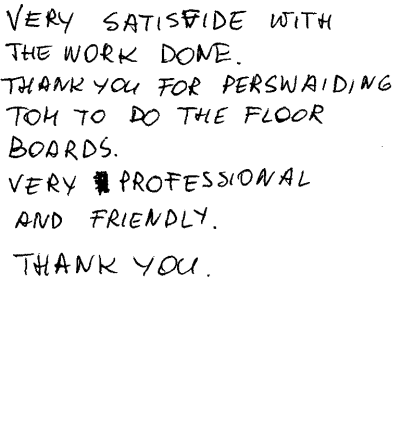 VERY SATISFIDE WITH
THE WORK DONE.
THANK YOU FOR PERSWAIDING
TOM TO DO THE FLOOR
BOARDS.
VERY PROFESSIONAL
AND FRIENDLY.
THANK YOU.